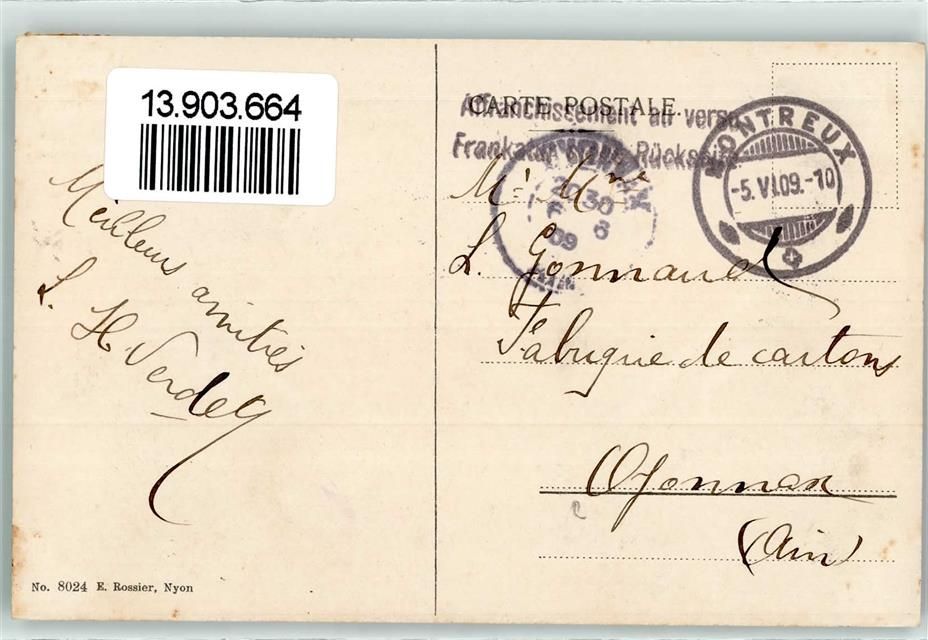 13.903.664
Meilleurs amitiés
L. H. Verdey
No. 8024 E. Rossier, Nyon
CARTE POSTALE.
Affranchissement au verso
Frankatur Rückseite
MONTREUX
-5.VI.09.-10
30
6
09
Mr Mme
L. Gonnand
Fabrique de cartons
Oyonnax
(Ain)